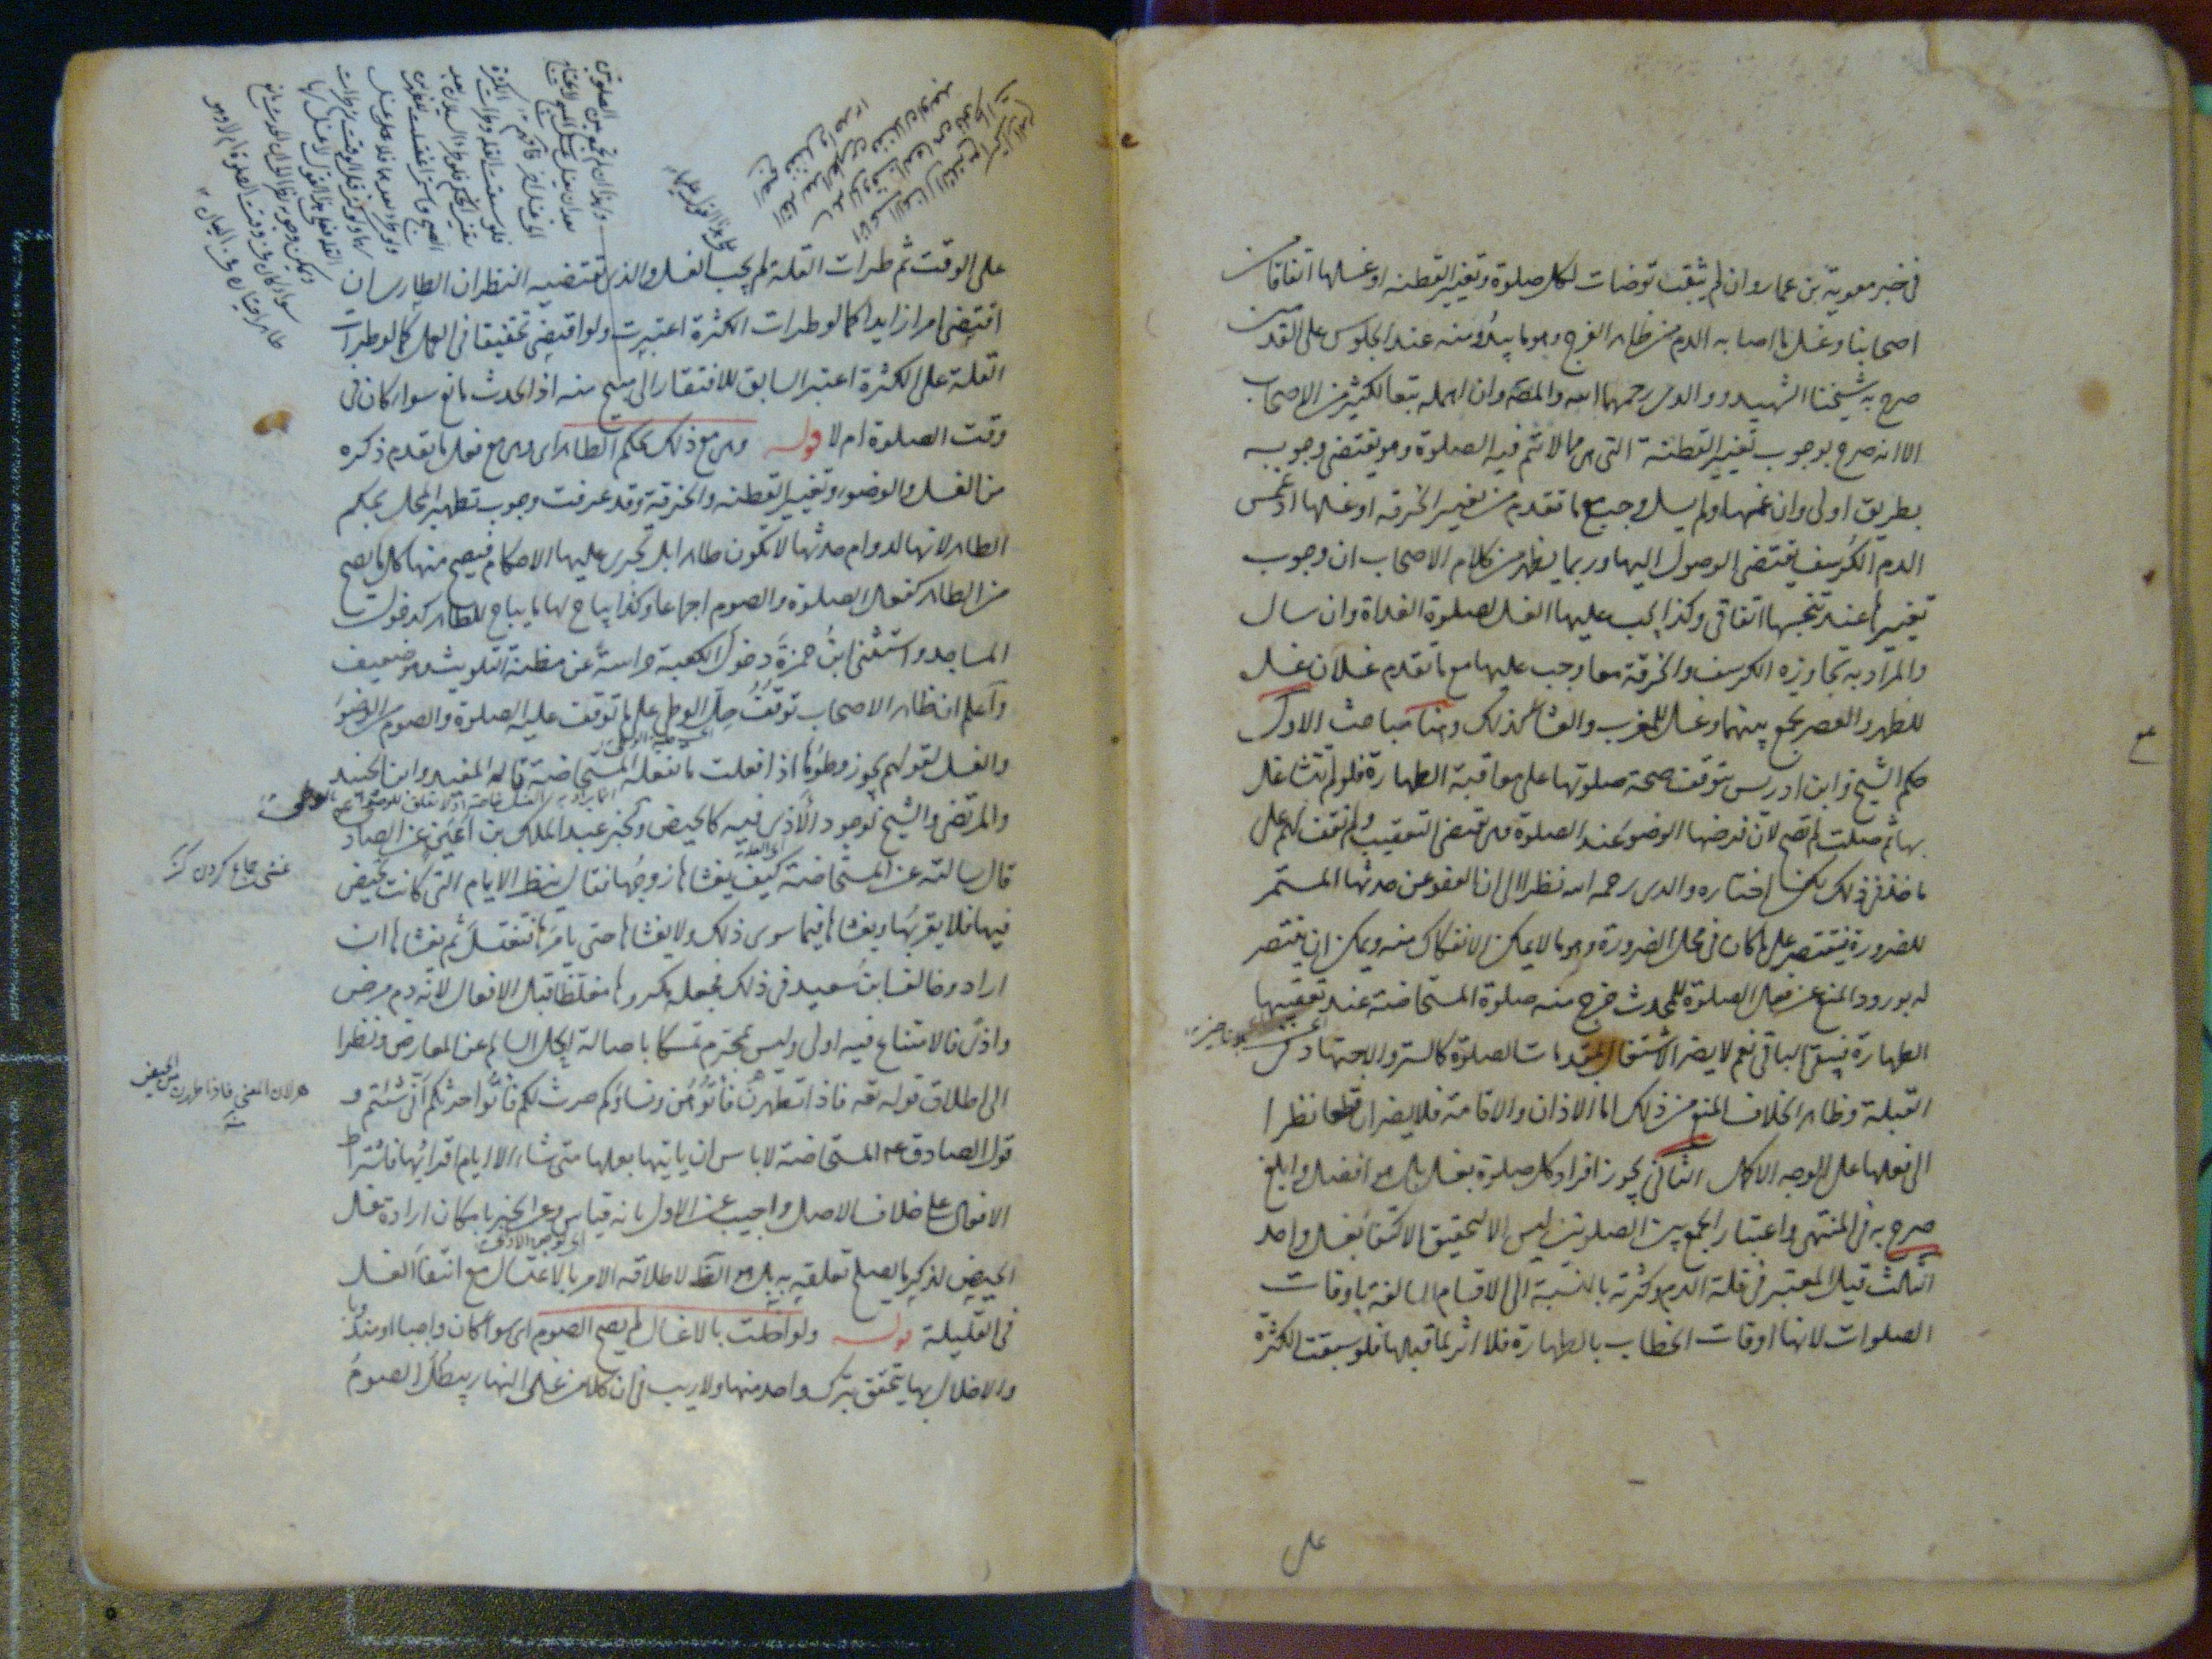 في خبر معوية بن عمار وان لم يثقب توضات لكل صلوة وتغيير القطنه او غسلها اتفاقا من
اصحابنا وغسل ما اصابه الدم من ظاهر الفرج وهو ما يبدو منه عند الجلوس على القدمين
صرح به شيخنا الشهيد ووالدي رحمهما الله والمصَ وان اهمله تبعا لكثير من الاصحاب
الا انه صرح بوجوب تغيير القطنة التي هي مما لا تتم فيه الصلوة وهو يقتضي وجوبه
بطريق اولى وان غمسها ولم يسل وجب مع ما تقدم من تغيير الخرقه او غسلها اذ غمس
الدم الكرسف يقتضي الوصول اليها وربما يظهر من كلام الاصحاب ان وجوب
تغييرها عند تنجسها اتفاقي وكذا يجب عليها الغسل لصلوة الغداة وان سال
والمراد به تجاوزه الكرسف والخرقة معا وجب عليها مع ما تقدم غسلان غسل
للظهر والعصر تجمع بينهما وغسل للمغرب والعشاء كذلك وهنا مباحث الاول
حكم الشيخ وابن ادريس بتوقف صحة صلوتها على معاقبة الطهارة فلو لم تتشاغل
بها ثم صلت لم تصح لان فرضها الوضوء عند الصلوة وهي تقتضي التعقيب ولم نقف لهم على
ماخذ في ذلك لكن اختاره والدي رحمه الله نظرا الى ان العفو عن حدثها المستمر
للضرورة فيقتصر على ما كان في محل الضرورة وهو ما لا يمكن الانفكاك منه ويمكن ان ينتصر
له بورود المنع عن فعل الصلوة للمحدث خرج منه صلوة المستحاضة عند تعقيبها
الطهارة فيبقى الباقي نعم لا يضر الاشتغال بمقدمات الصلوة كالستر والاجتهاد في
القبلة وظاهر الخلاف المنع من ذلك اما الاذان والاقامة فلا يضران قطعا نظرا
الى فعلها على الوجه الاكمل الثاني يجوز افراد كل صلوة بغسل بل هو افضل وابلغ
صرح به في المنتهى واعتبار الجمع بين الصلوتين ليس الا لتحقيق الاكتفاء بغسل واحد
الثالث قيل المعتبر في قلة الدم وكثرته بالنسبة الى الاقسام السالفة باوقات
الصلوات لانها اوقات الخطاب بالطهارة فلا اثر لما قبلها فلو سبقت الكثرة
على
على الوقت ثم طرات القلة لم يجب الغسل والذي تقتضيه النظر ان الطاري ان
اقتضى امرا زايدا كما لو طرات الكثرة اعتبرت ولو اقتضى تخفيفا في العمل كما لو طرات
القلة على الكثرة اعتبر السابق للافتقار الى مبيح منه اذ الحدث مانع سواء كان في
وقت الصلوة ام لا قوله وهي مع ذلك بحكم الطاهر اي وهي مع فعل ما تقدم ذكره
من الغسل والوضوء وتغيير القطنه والخرقة وقد عرفت وجوب تطهير المحل بحكم
الطاهر لانها لدوام حدثها لا تكون طاهرا بل تجري عليها الاحكام فيصح منها كل ما يصح
من الطاهر كفعل الصلوة والصوم اجماعا وكذا يباح لها ما يباح للطاهر كدخول
المساجد واستثنى ابن حمزة دخول الكعبة حراسة عن مظنة التلويث وهو ضعيف
واعلم ان ظاهر الاصحاب توقف حل الوطي على ما توقف عليه الصلوة والصوم من الوضوء
والغسل لقولهم يجوز وطؤها اذا فعلت ما تفعله المستحاضة قاله المفيد وابن الجنيد
والمرتضى والشيخ لوجود الاذى فيه كالحيض ولخبر عبد الملك بن اعين عن الصادق
قال سالته عن المستحاضة كيف يغشاها زوجها فقال ينظر الايام التي كانت تحيض
فيها فلا يقربها ويغشاها فيما سوى ذلك ولا يغشاها حتى يامرها فتغتسل ثم يغشاها ان
اراد وخالف ابن سعيد في ذلك فجعله مكروها مغلظا قبل الافعال لانه دم مرض
واذى فالامتناع فيه اولى وليس بمحرم تمسكا باصالة الحل السالم عن المعارض ونظرا
الى اطلاق قوله تعه فاذا تطهرن فاتوهن ونساؤكم حرث لكم فاتوا حرثكم انى شئتم و
قول الصادق ع المستحاضة لا باس ان ياتيها بعلها متى شاء الا ايام اقرائها فاشتراط
الافعال على خلاف الاصل واجيب عن الاول بانه قياس وعن الخبر بامكان ارادة غسل
الحيض لذكره ما يصلح تعلقه به بل هو الظَ لاطلاقه الامر بالاغتسال مع انتفاء الغسل
في القليلة قوله ولو اخلت بالاغسال لم يصح الصوم اي سواء كان واجبا او مندوبا
والاخلال بها يتحقق بترك واحد منها ولا ريب في ان كلا من غسلي النهار يبطل الصوم
غشى جماع كردن كنز